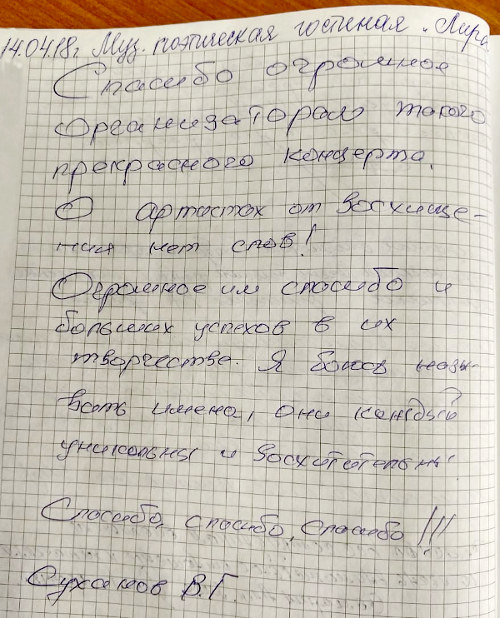 14.04.18г Муз. поэтическая гостиная "Лира
Спасибо огромное
организаторам такого
прекрасного концерта.
О артистах от восхище-
ния нет слов!
Огромное им спасибо и
больших успехов в их
творчестве. Я боюсь назы-
вать имена, они каждый
уникальны и восхитительны.
Спасибо, спасибо, спасибо!!!
Суханов В.Г.